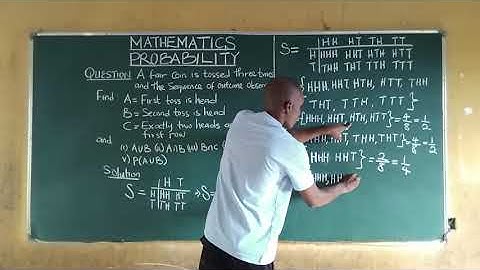 MATHEMATICS
PROBABILITY
QUESTION: A fair Coin is tossed three times
and The Sequence of outcome Observ
Find
A = First toss is head
B = Second toss is head
C = Exactly two heads
first row
and
(i) AUB (ii) A∩B (iii) B∩C
v) P(AUB)
Solution
S =
H T
H HH HT
T TH TT
⇒ S =
S =
HH HT TH TT
H HHH HHT HTH HTT
T THH THT TTH TTT
{HHH, HHT, HTH, HTT, THH
THT, TTH, TTT}
{HHH, HHT, HTH, HTT} = 4/8 = 1/2
THH, THT} = 4/8 = 1/2
HHH HHT} = 2/8 = 1/4